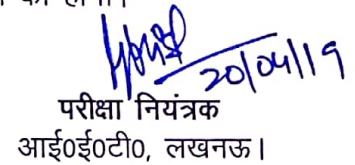 20/04/19
परीक्षा नियंत्रक
आई०ई०टी०, लखनऊ।